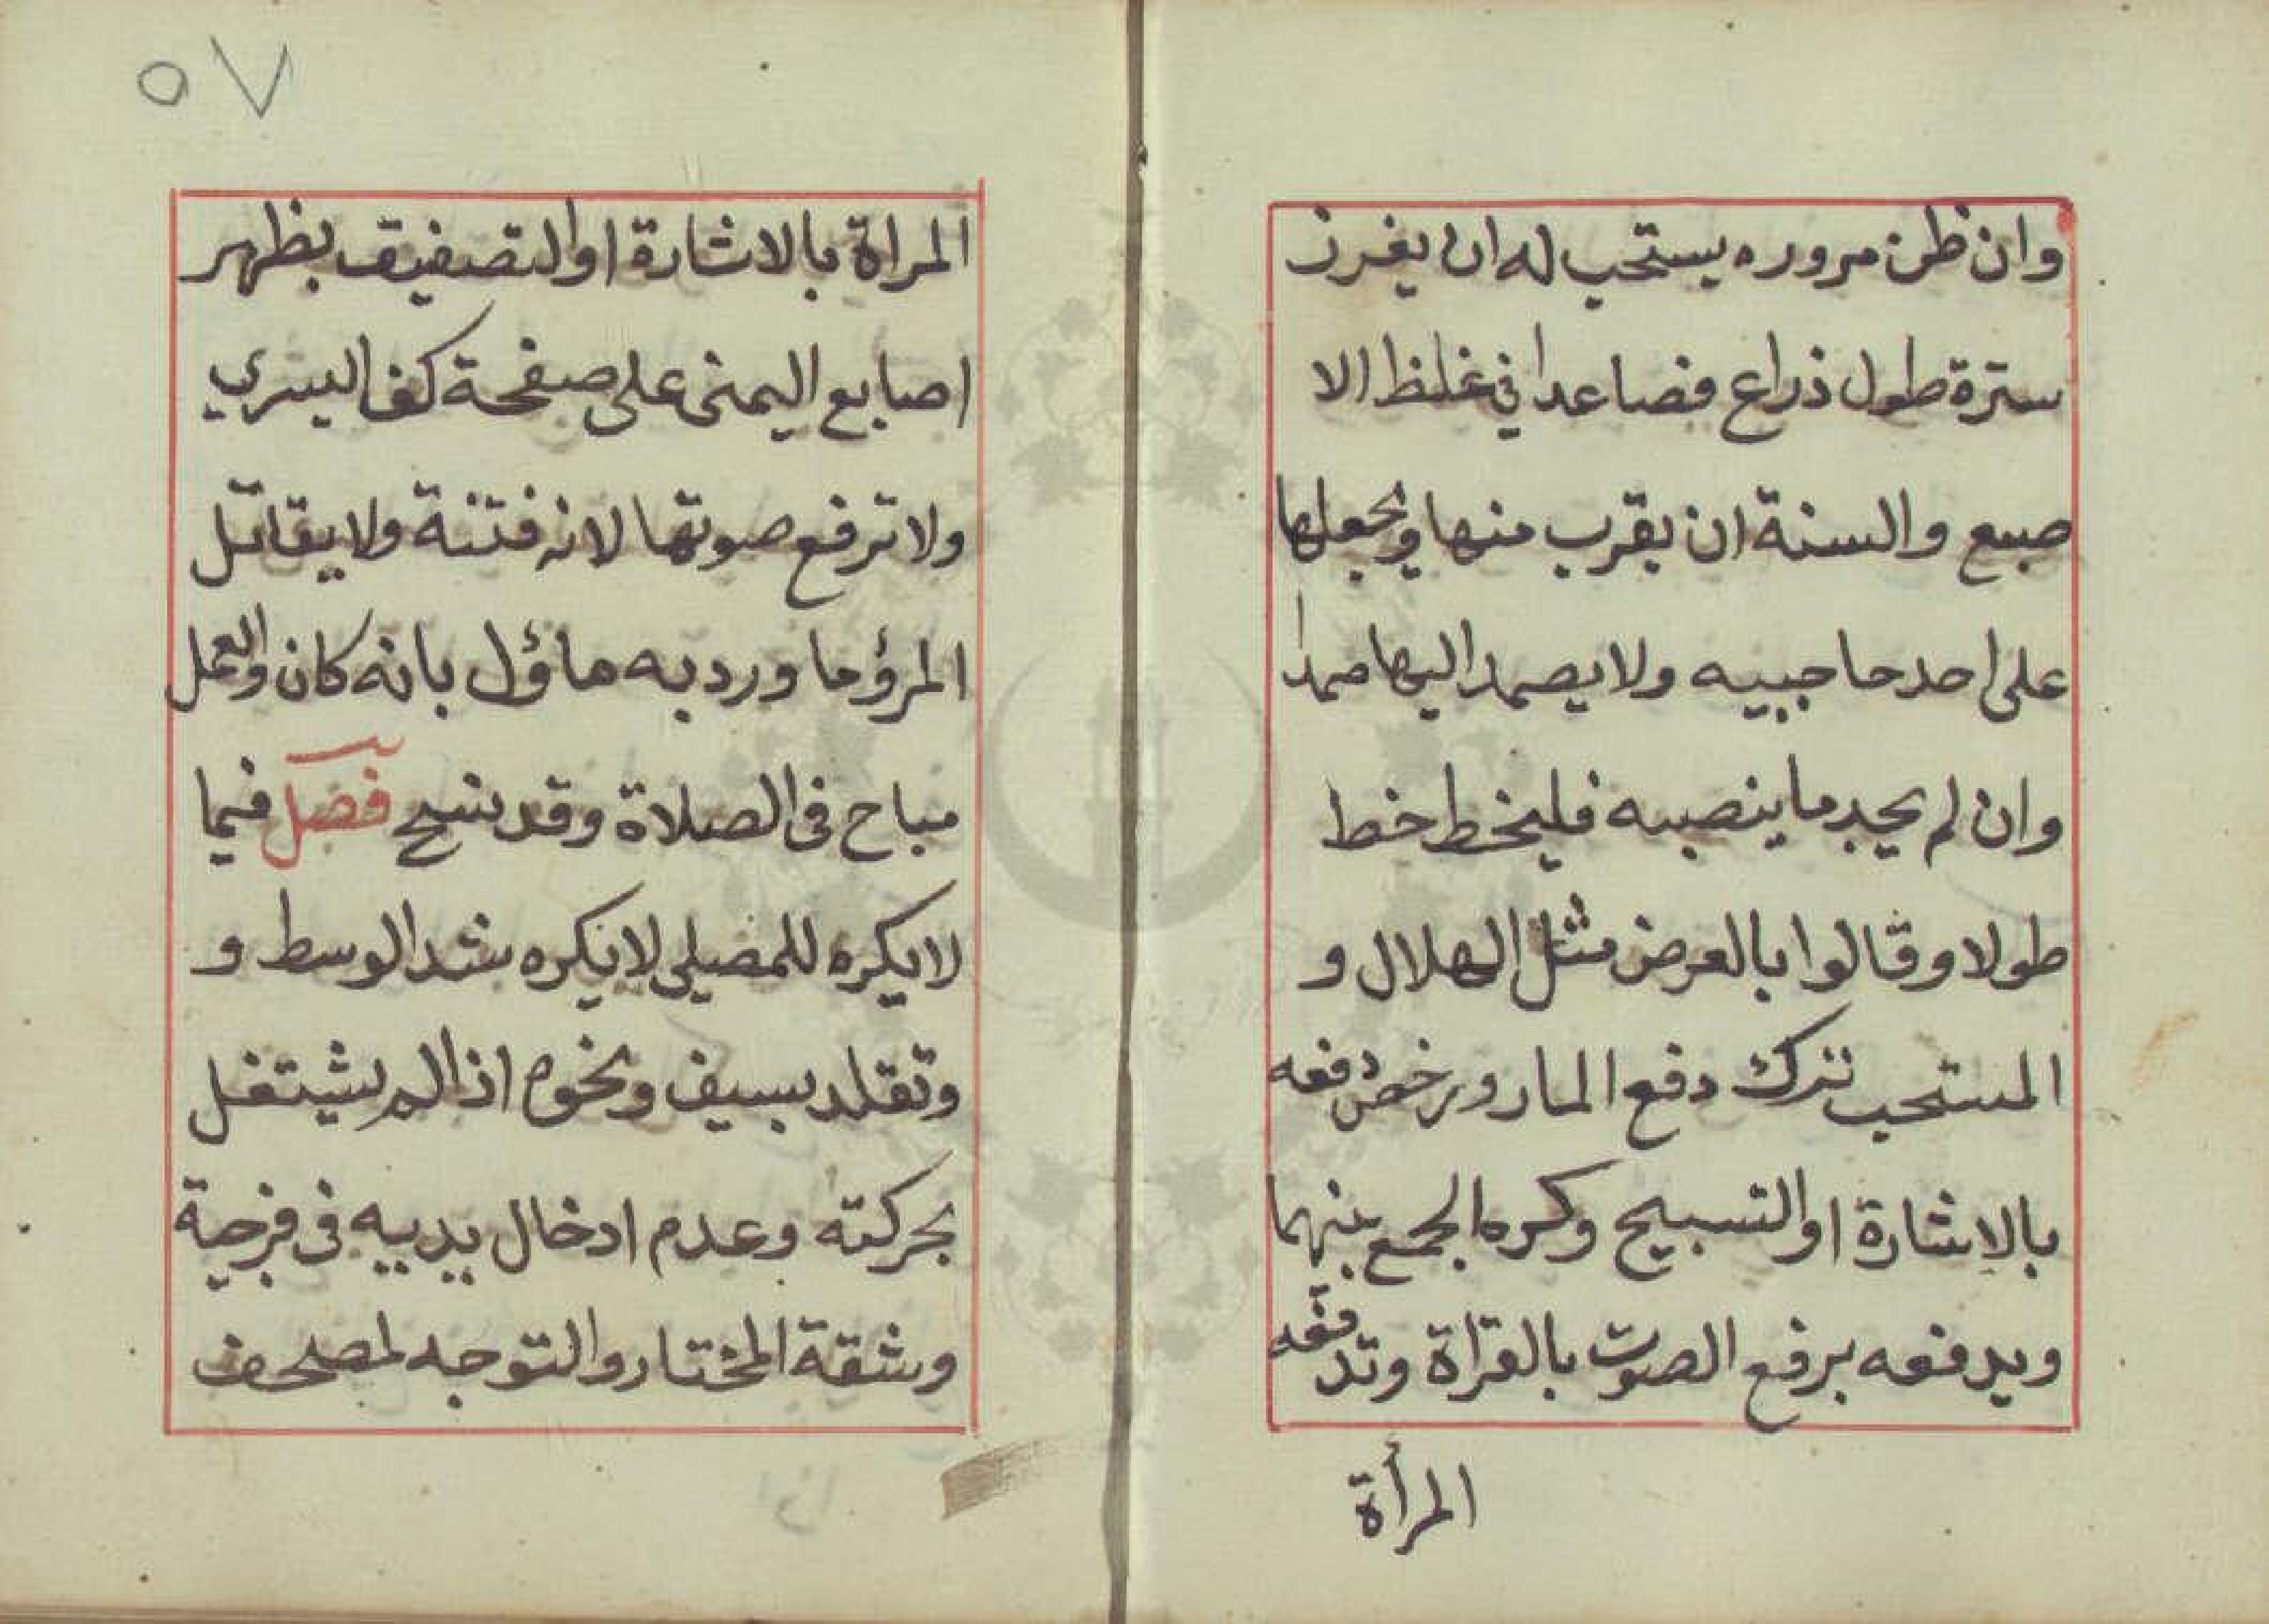 وان ظن مروره يستحب له ان يغرز
سترة طول ذراع فصاعدا في غلظ الا
صبع والسنة ان يقرب منها ويجعلها
على احد حاجبيه ولا يصمد اليها صمدا
وان لم يجد ما ينصبه فليخط خط
طولا وقالوا بالعرض مثل الهلال و
المستحب ترك دفع المار ورخص دفعه
بالاشارة او التسبيح وكره الجمع بينهما
ويدفعه برفع الصوت بالقراة وتدفعه
المرأة
٥٧
المراة بالاشارة او التصفيق بظهر
اصابع اليمنى على صفحة كف اليسري
ولا ترفع صوتها لانه فتنة ولا يقاتل
المرؤ ما ورد به ماؤل بانه كان والعمل
مباح فى الصلاة وقد نسح فصل فيما
لا يكره للمصلي لا يكره شد الوسط و
وتقلد بسيف ونحوه اذا لم يشتغل
بحركته وعدم ادخال يدييه فى فرجية
وشقة المختار والتوجه لمصلحف